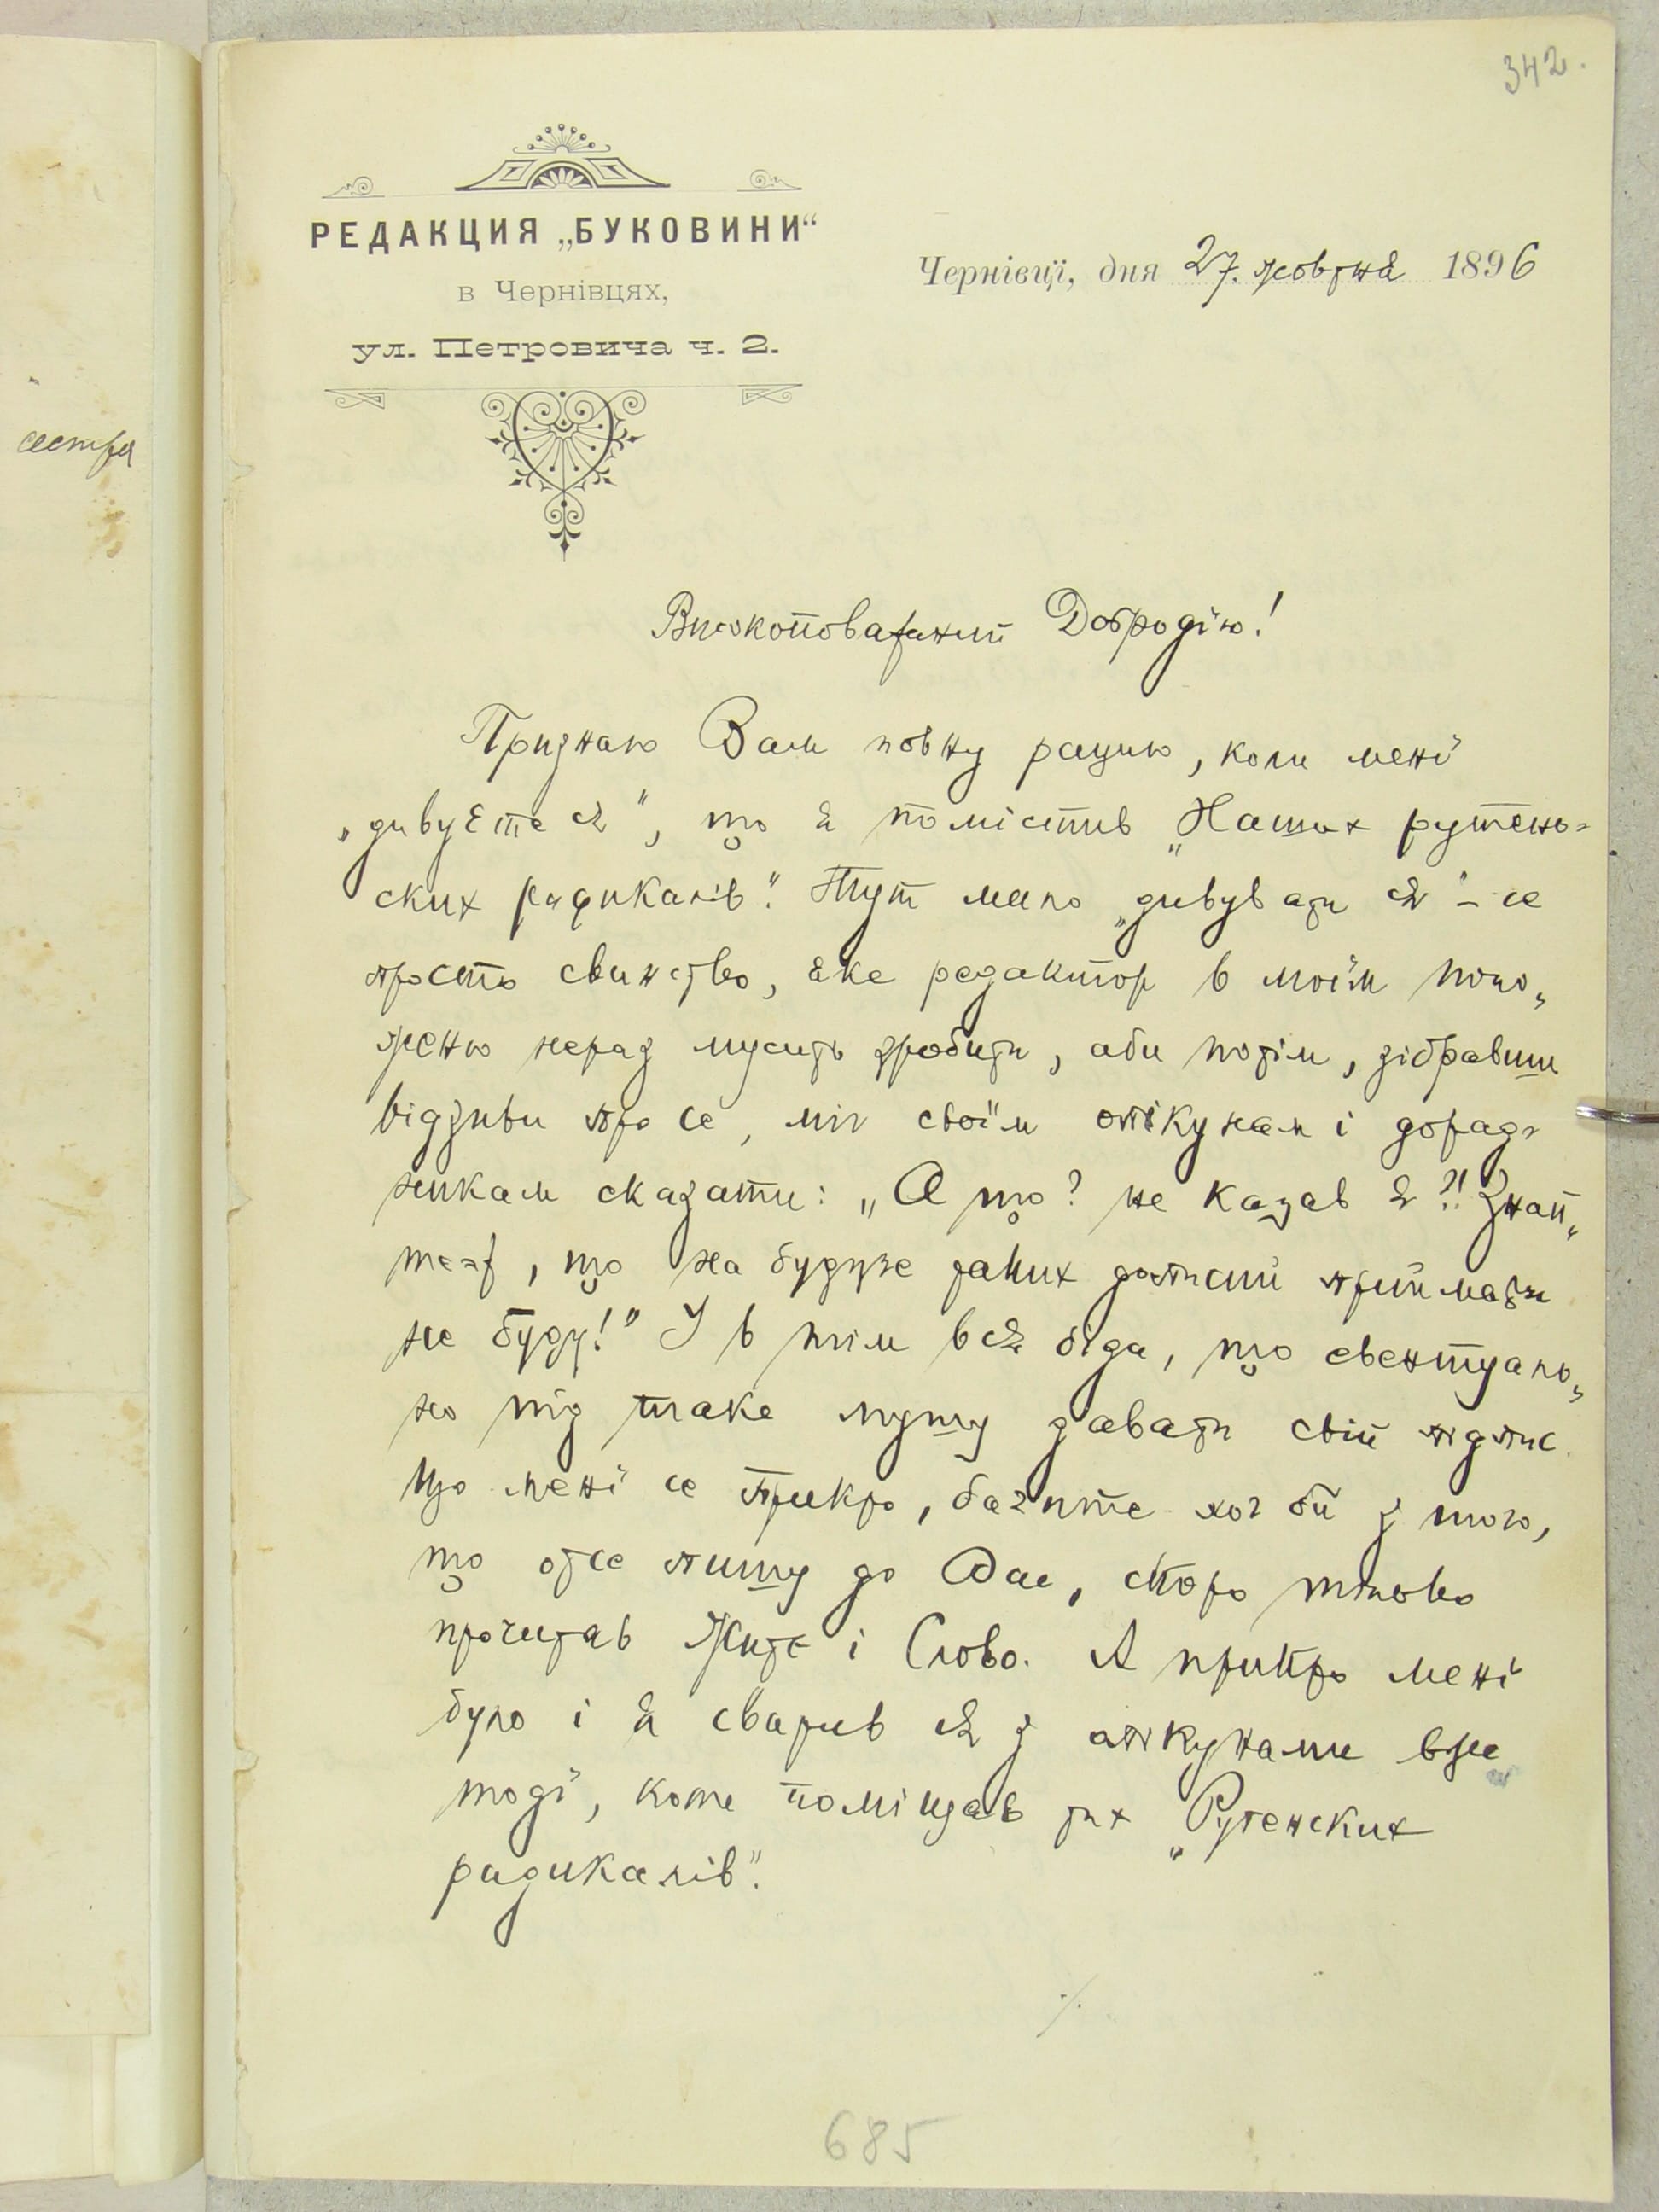 342.
РЕДАКЦИЯ „БУКОВИНИ“
в Чернівцях,
ул. Петровича ч. 2.
Чернівцї, дня 27. жовтня 1896
сестра
Високоповажаний Добродїю!
Признаю Вам повну рацию, коли менї
„дивуєте ся", що я помістив „Наших рутень=
ских радикалів". Тут мало „дивувати ся" – се
просто свинство, яке редактор в моїм поло„
женю нераз мусить зробити, аби потім, зібравши
відзиви про се, міг своїм опікунам і дорад=
никам сказати: „А що? не казав я?! Знай„
те=ж, що на будуче таких дописий приймати
не буду!" І в тім вся біда, що евентуаль„
но під таке мушу давати свій підпис.
Що менї се прикро, бачите хоч би з того,
що отсе пишу до Вас, скоро тілько
прочитав Житє і Слово. А прикро менї
було і я сварив ся з опікунами вже
тодї, коли поміщав тих „Рутенских
радикалів".
./.
685